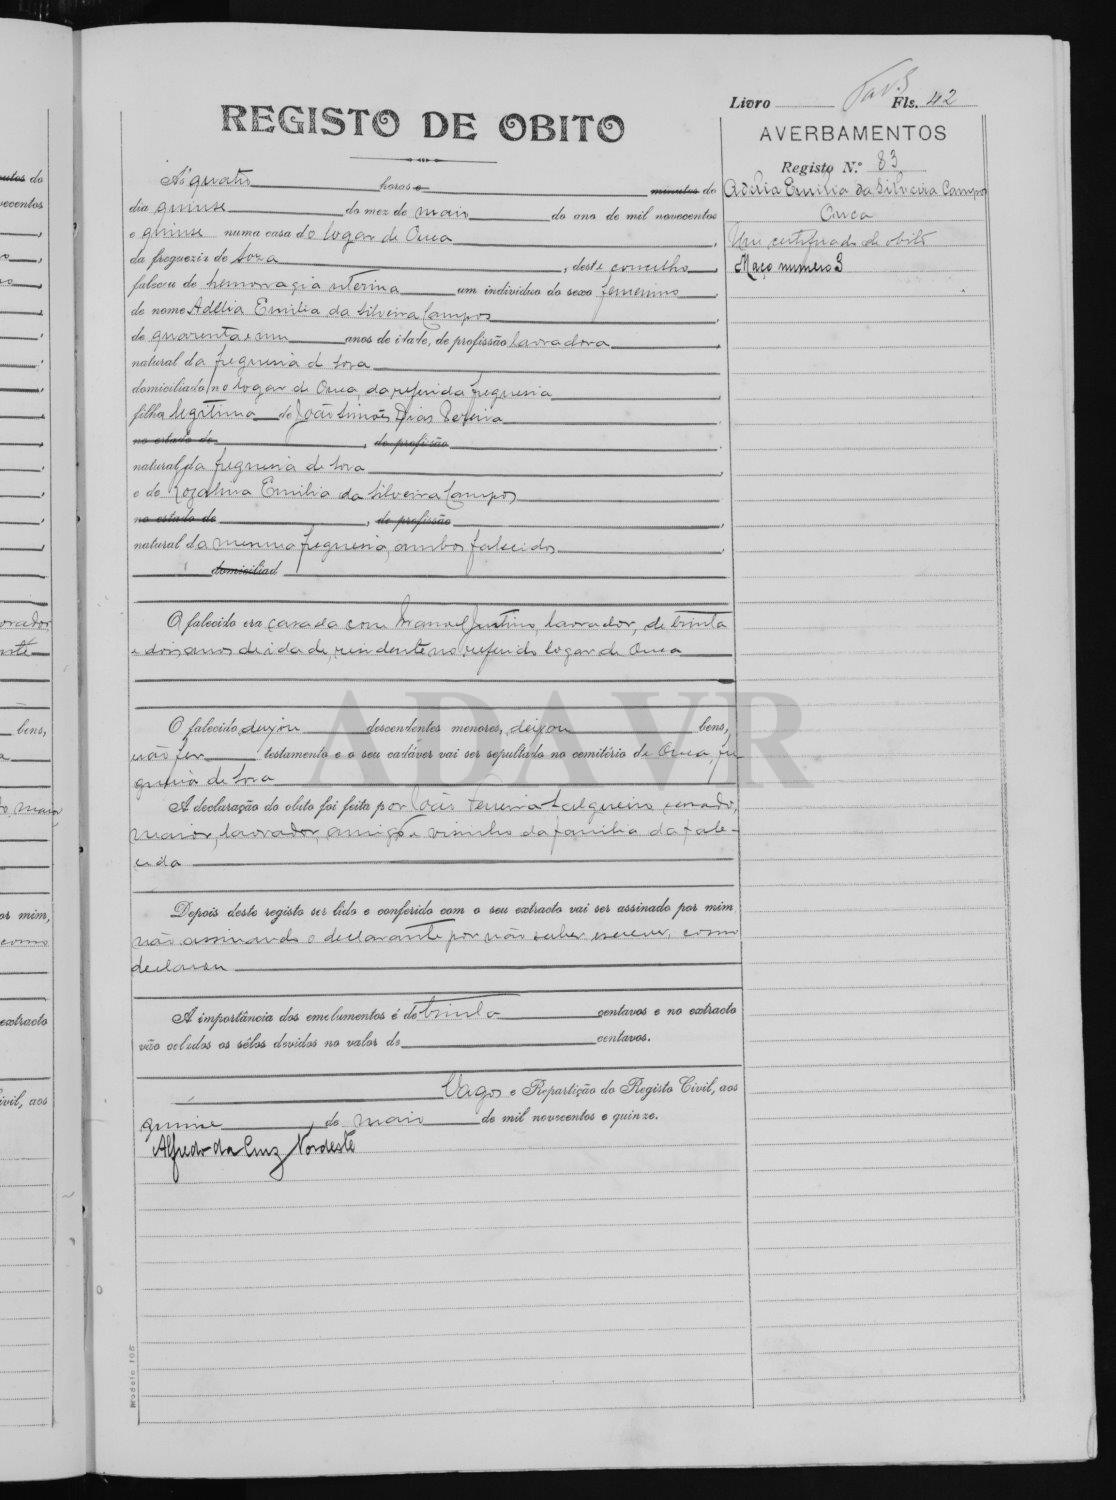 Livro Fls. 42
REGISTO DE OBITO
AVERBAMENTOS
Registo N.º 83
Ás quatro horas e minutos do
Adelia Emilia da Silveira Campos
dia quinse do mez de maio do ano de mil novecentos
Ouca
e quinse numa casa do logar de Ouca,
Um certificado de obito
da freguezia de Soza, deste concelho,
Maço numero 3
faleceu de hemorragia uterina um individuo do sexo femenino,
de nome Adelia Emilia da Silveira Campos,
de quarenta e um anos de idade, de profissão lavradora,
natural da freguesia de Soza
domiciliada no logar de Ouca, da referida freguesia,
filha legitima de João Simões Dias
no estado de, de profissão
natural da freguesia de Soza,
e de Rozalina Emilia da Silveira Campos
no estado de, de profissão,
natural da mesma freguesia, ambos falecidos,
domiciliad
A falecida era casada com Manoel Justino, lavrador, de trinta
e dois anos de idade, residente no referido logar de Ouca
O falecido deixou descendentes menores, deixou bens,
não fez testamento e o seu cadáver vai ser sepultado no cemitério de Ouca, fre
guesia de Soza
A declaração do obito foi feita por João Ferreira casado,
maior, lavrador, amigo e visinho da familia da fale-
cida
Depois deste registo ser lido e conferido com o seu extracto vai ser assinado por mim
não assinando o declarante por não saber escrever, como
declarou
A importância dos emolumentos é de trinta centavos e no extracto
vão colados os sêlos devidos no valor de centavos.
Vagos e Repartição do Registo Civil, aos
quinse, de maio de mil novecentos e quinze.
Alfredo da Cruz Nordeste
Modelo 105
ADAVR